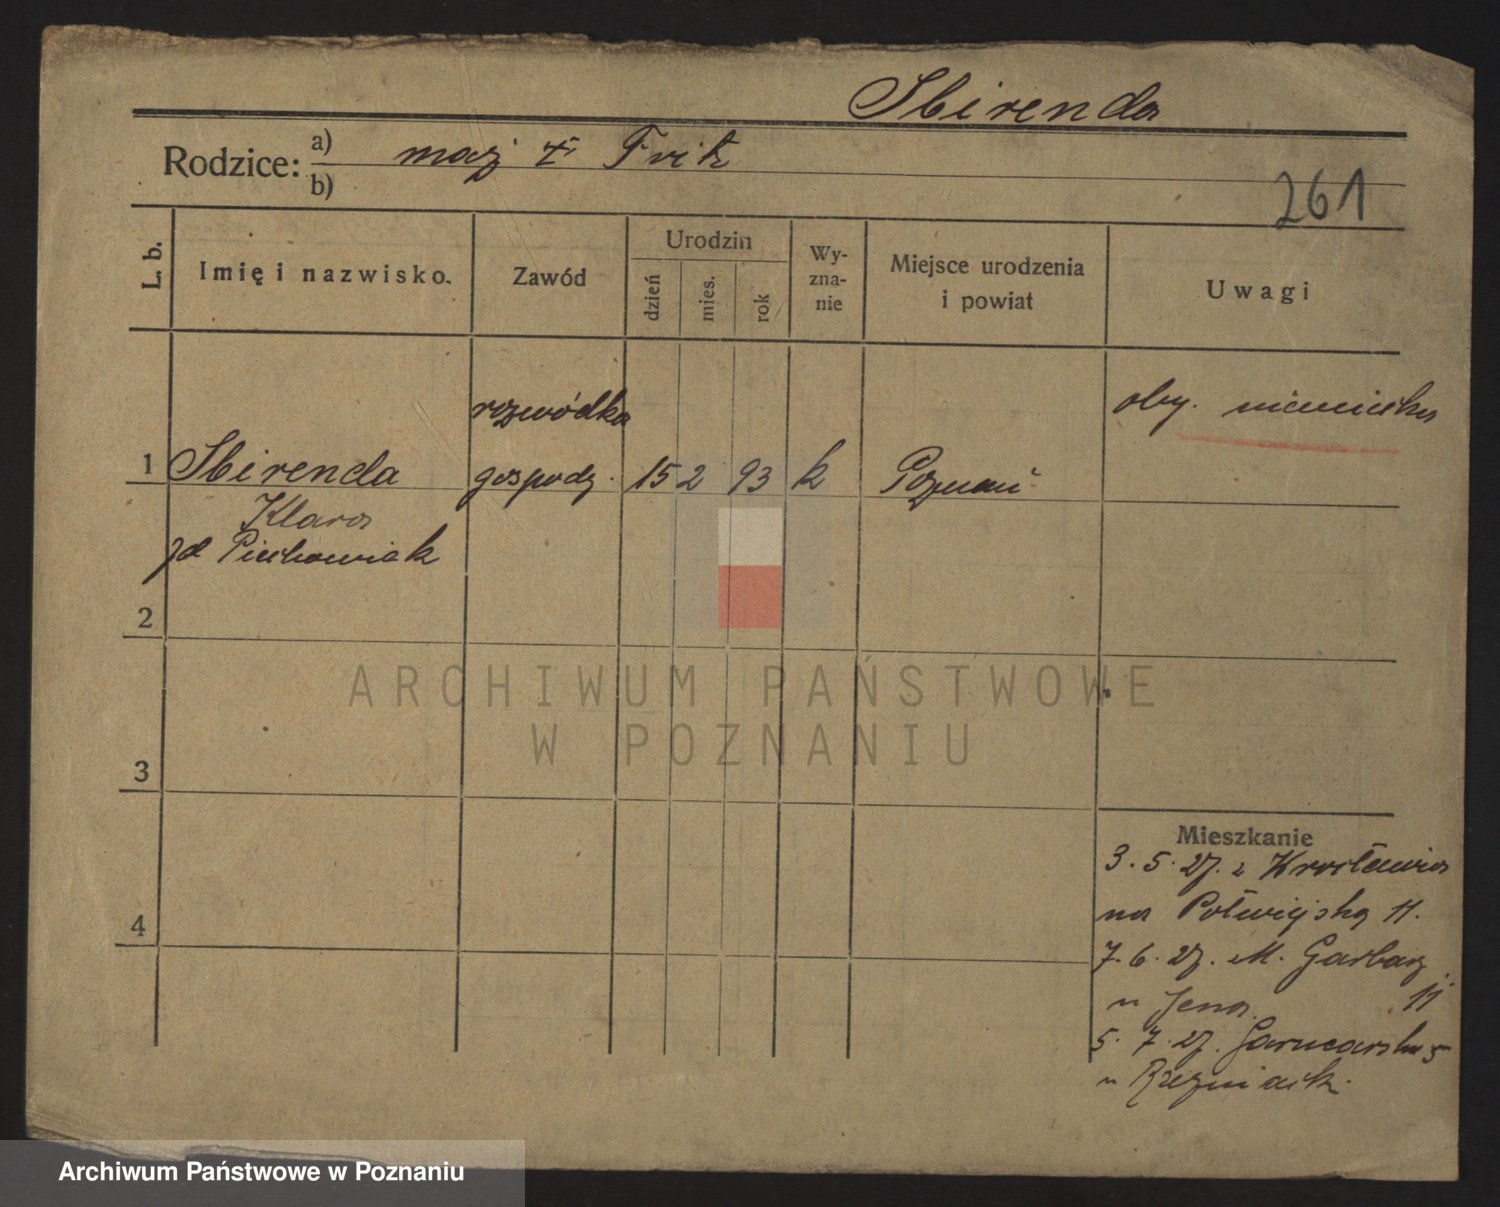 Sbirenda
Rodzice: a) maż Fritz
b)
261
L. b.
Imię i nazwisko.
Zawód
Urodzin
dzień
mies.
rok
Wy-
zna-
nie
Miejsce urodzenia
i powiat
Uwagi
rozwódka
oby. niemiecka
1 Sbirenda gospodz. 15 2 93 k Poznań
Klara
Piechowiak
2
3
4
Mieszkanie
3. 5. 27. z
na Półwiejską 11.
7. 6. 27. M. Garbary
u Jena. 11
5. 7. 27. Garncarska 5
u
ARCHIWUM PAŃSTWOWE
W POZNANIU
Archiwum Państwowe w Poznaniu